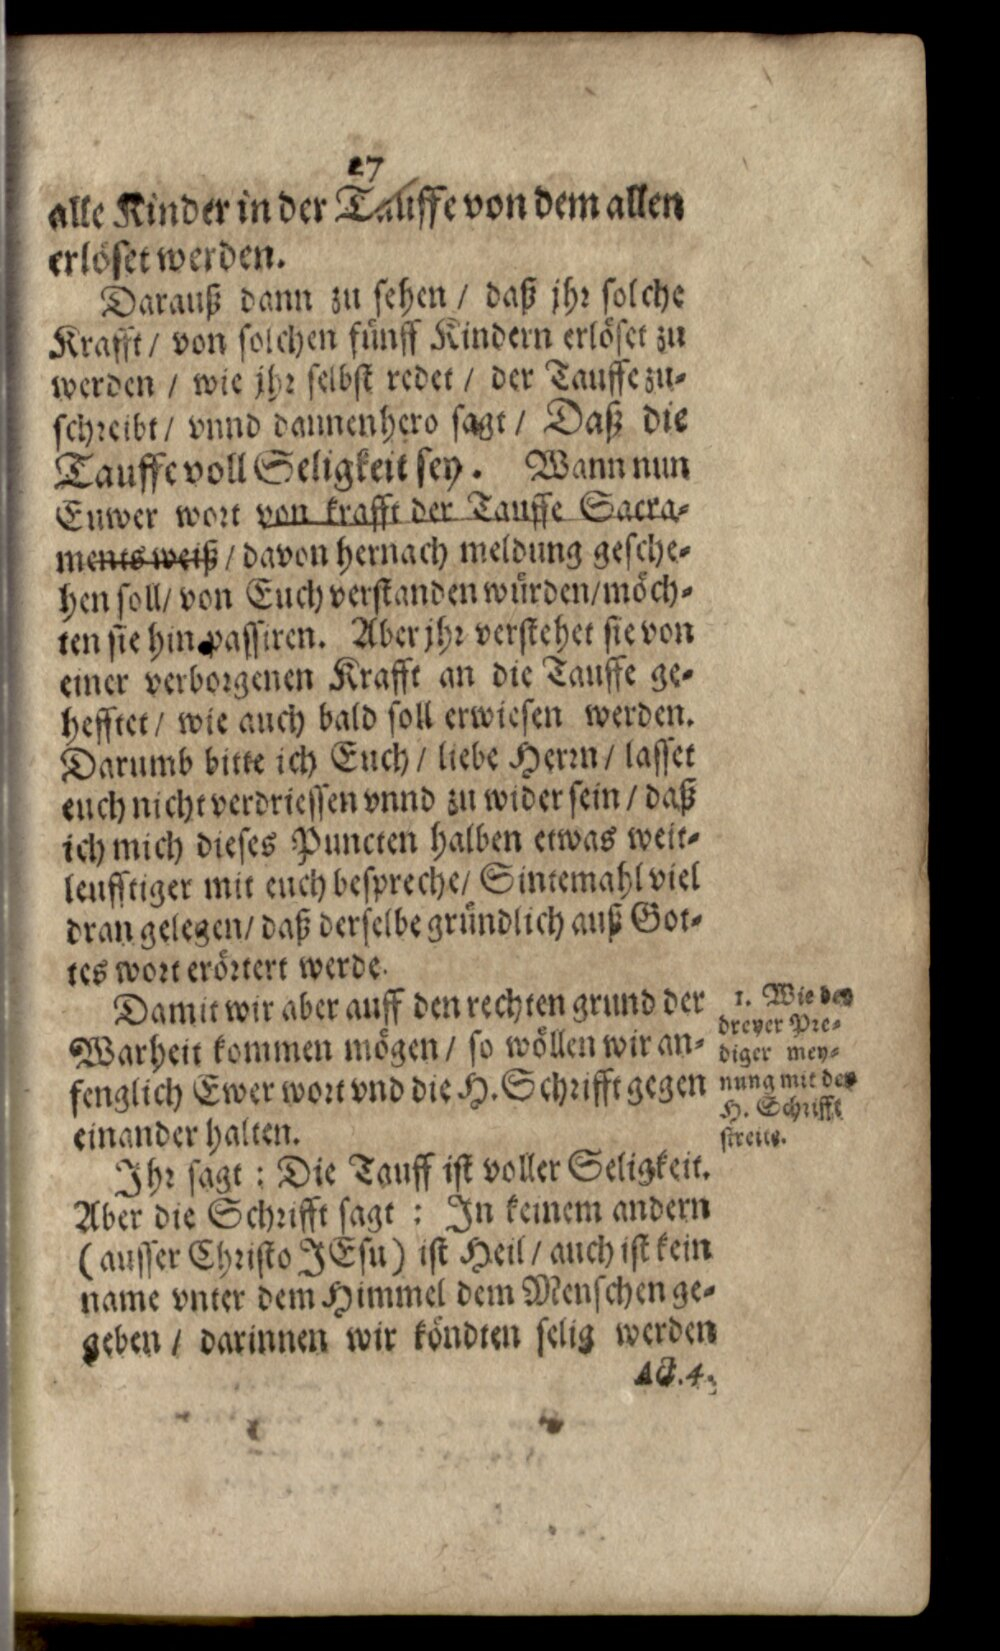 27
alle Kinder in der Tauffe von dem allen
erlöset werden.
Darauß dann zu sehen / daß jhr solche
Krafft / von solchen fünff Kindern erlöset zu
werden / wie jhr selbst redet / der Tauffe zu-
schreibt / vnnd dannenhero sagt / Daß die
Tauffe voll Seligkeit sey. Wann nun
Euwer wort von krafft der Tauffe Sacra-
ments weiß / davon hernach meldung gesche-
hen soll / von Euch verstanden würden / möch-
ten sie hin passiren. Aber jhr verstehet sie von
einer verborgenen Krafft an die Tauffe ge-
hefftet / wie auch bald soll erwiesen werden.
Darumb bitte ich Euch / liebe Herrn / lasset
euch nicht verdriessen vnnd zu wider sein / daß
ich mich dieses Puncten halben etwas weit-
leufftiger mit euch bespreche / Sintemahl viel
dran gelegen / daß derselbe gründlich auß Got-
tes wort erörtert werde.
Damit wir aber auff den rechten grund der
Warheit kommen mögen / so wöllen wir an-
fenglich Ewer wort vnd die H. Schrifft gegen
einander halten.
1. Wie der
dreyer Pre-
diger mey-
nung mit der
H. Schrifft
streite.
Ihr sagt : Die Tauff ist voller Seligkeit.
Aber die Schrifft sagt : In keinem andern
(ausser Christo JEsu) ist Heil / auch ist kein
name vnter dem Himmel dem Menschen ge-
geben / darinnen wir köndten selig werden
Act. 4.